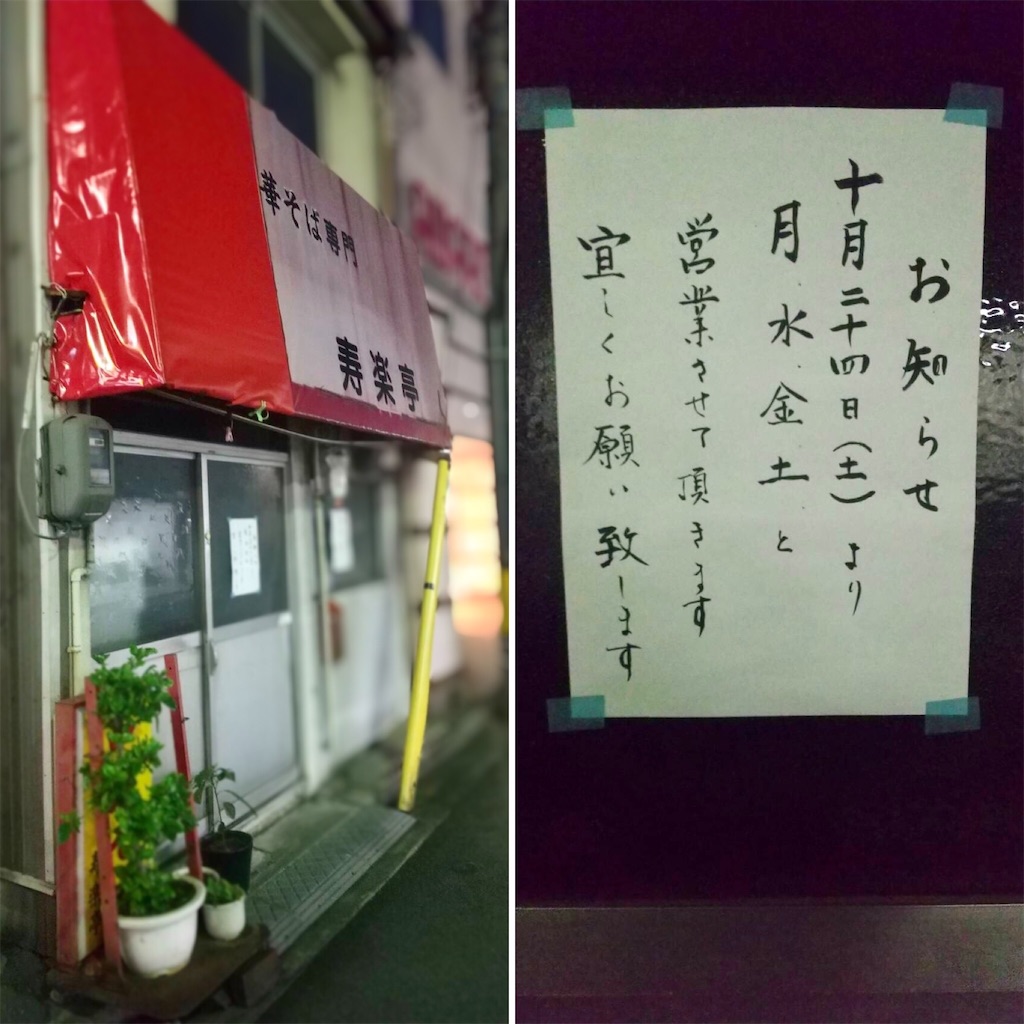 華そば専門
寿楽亭
お知らせ
十月二十四日(土)より
月、水、金、土と
営業させて頂きます
宜しくお願い致します